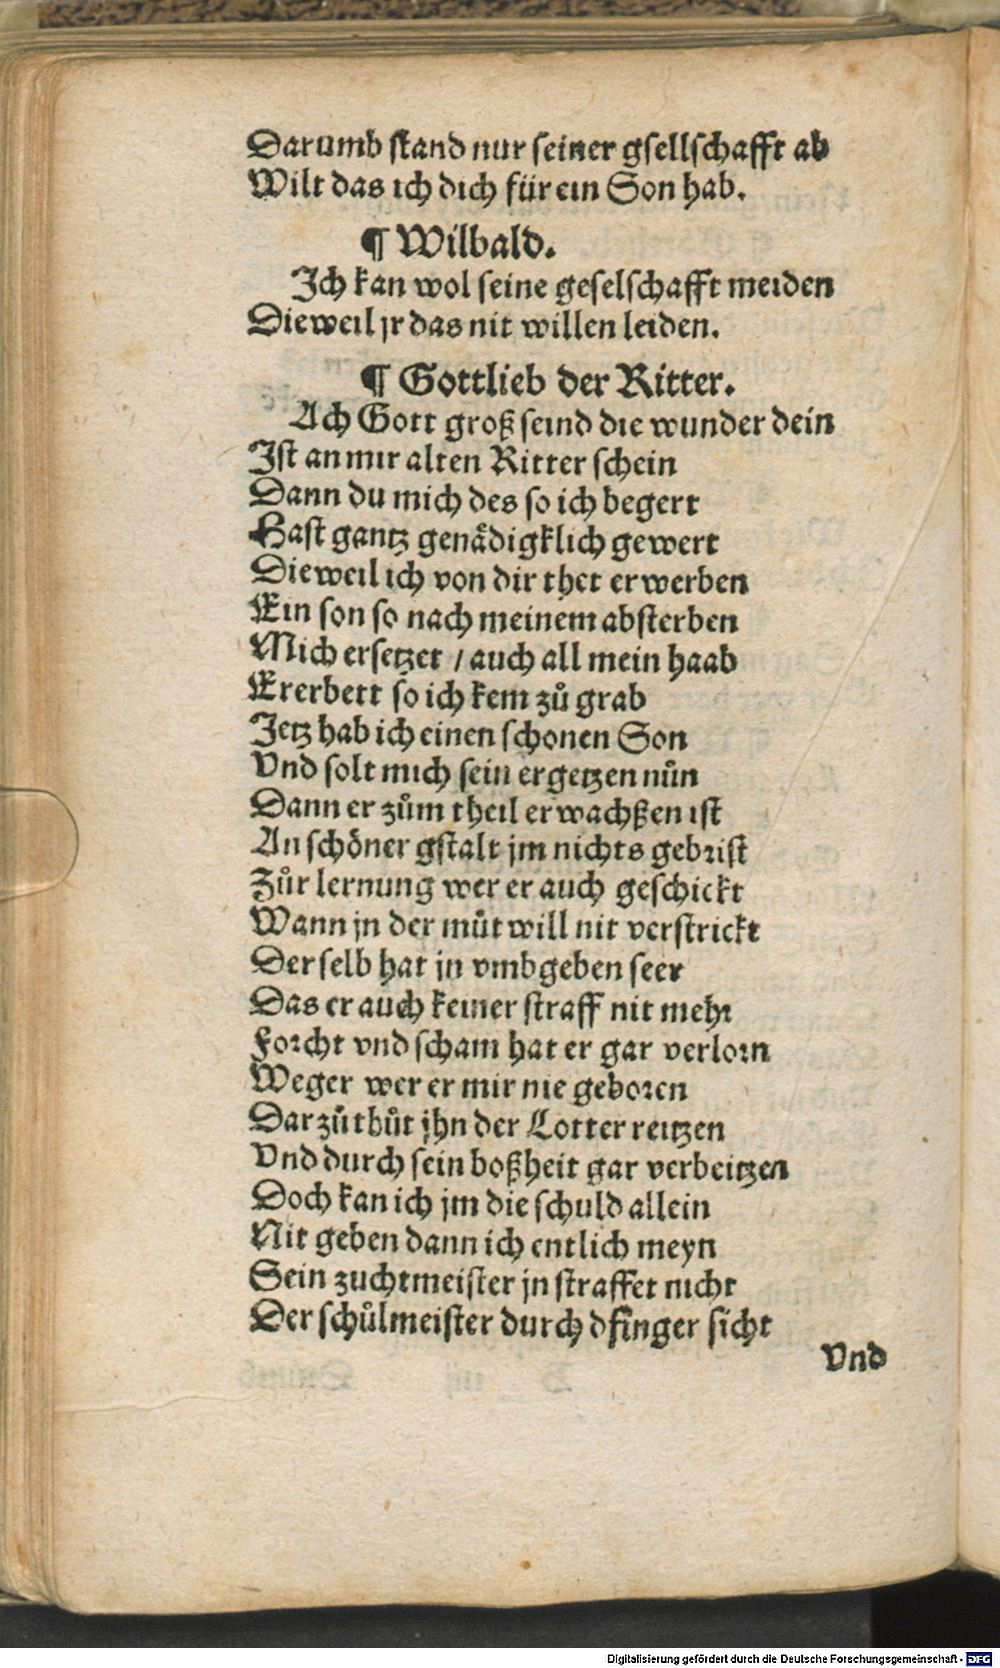 Darumb stand nur seiner gsellschafft ab
Wilt das ich dich für ein Son hab.
¶ Wilbald.
Ich kan wol seine geselschafft meiden
Dieweil jr das nit willen leiden.
¶ Gottlieb der Ritter.
Ach Gott groß seind die wunder dein
Ist an mir alten Ritter schein
Dann du mich des so ich begert
Hast gantz genädigklich gewert
Dieweil ich von dir thet erwerben
Ein son so nach meinem absterben
Mich ersetzet / auch all mein haab
Ererbett so ich kem zů grab
Jetz hab ich einen schonen Son
Vnd solt mich sein ergetzen nůn
Dann er zům theil erwachßen ist
An schöner gstalt jm nichts gebrist
Zůr lernung wer er auch geschickt
Wann jn der můtwill nit verstrickt
Derselb hat jn vmbgeben seer
Das er auch keiner straff nit mehr
Forcht vnd scham hat er gar verlorn
Weger wer er mir nie geboren
Darzů thůt jhn der Lotter reitzen
Vnd durch sein boßheit gar verbeitzen
Doch kan ich jm die schuld allein
Nit geben dann ich entlich meyn
Sein zuchtmeister jn straffet nicht
Der schůlmeister durch dfinger sicht
Vnd
Digitalisierung gefördert durch die Deutsche Forschungsgemeinschaft - DFG